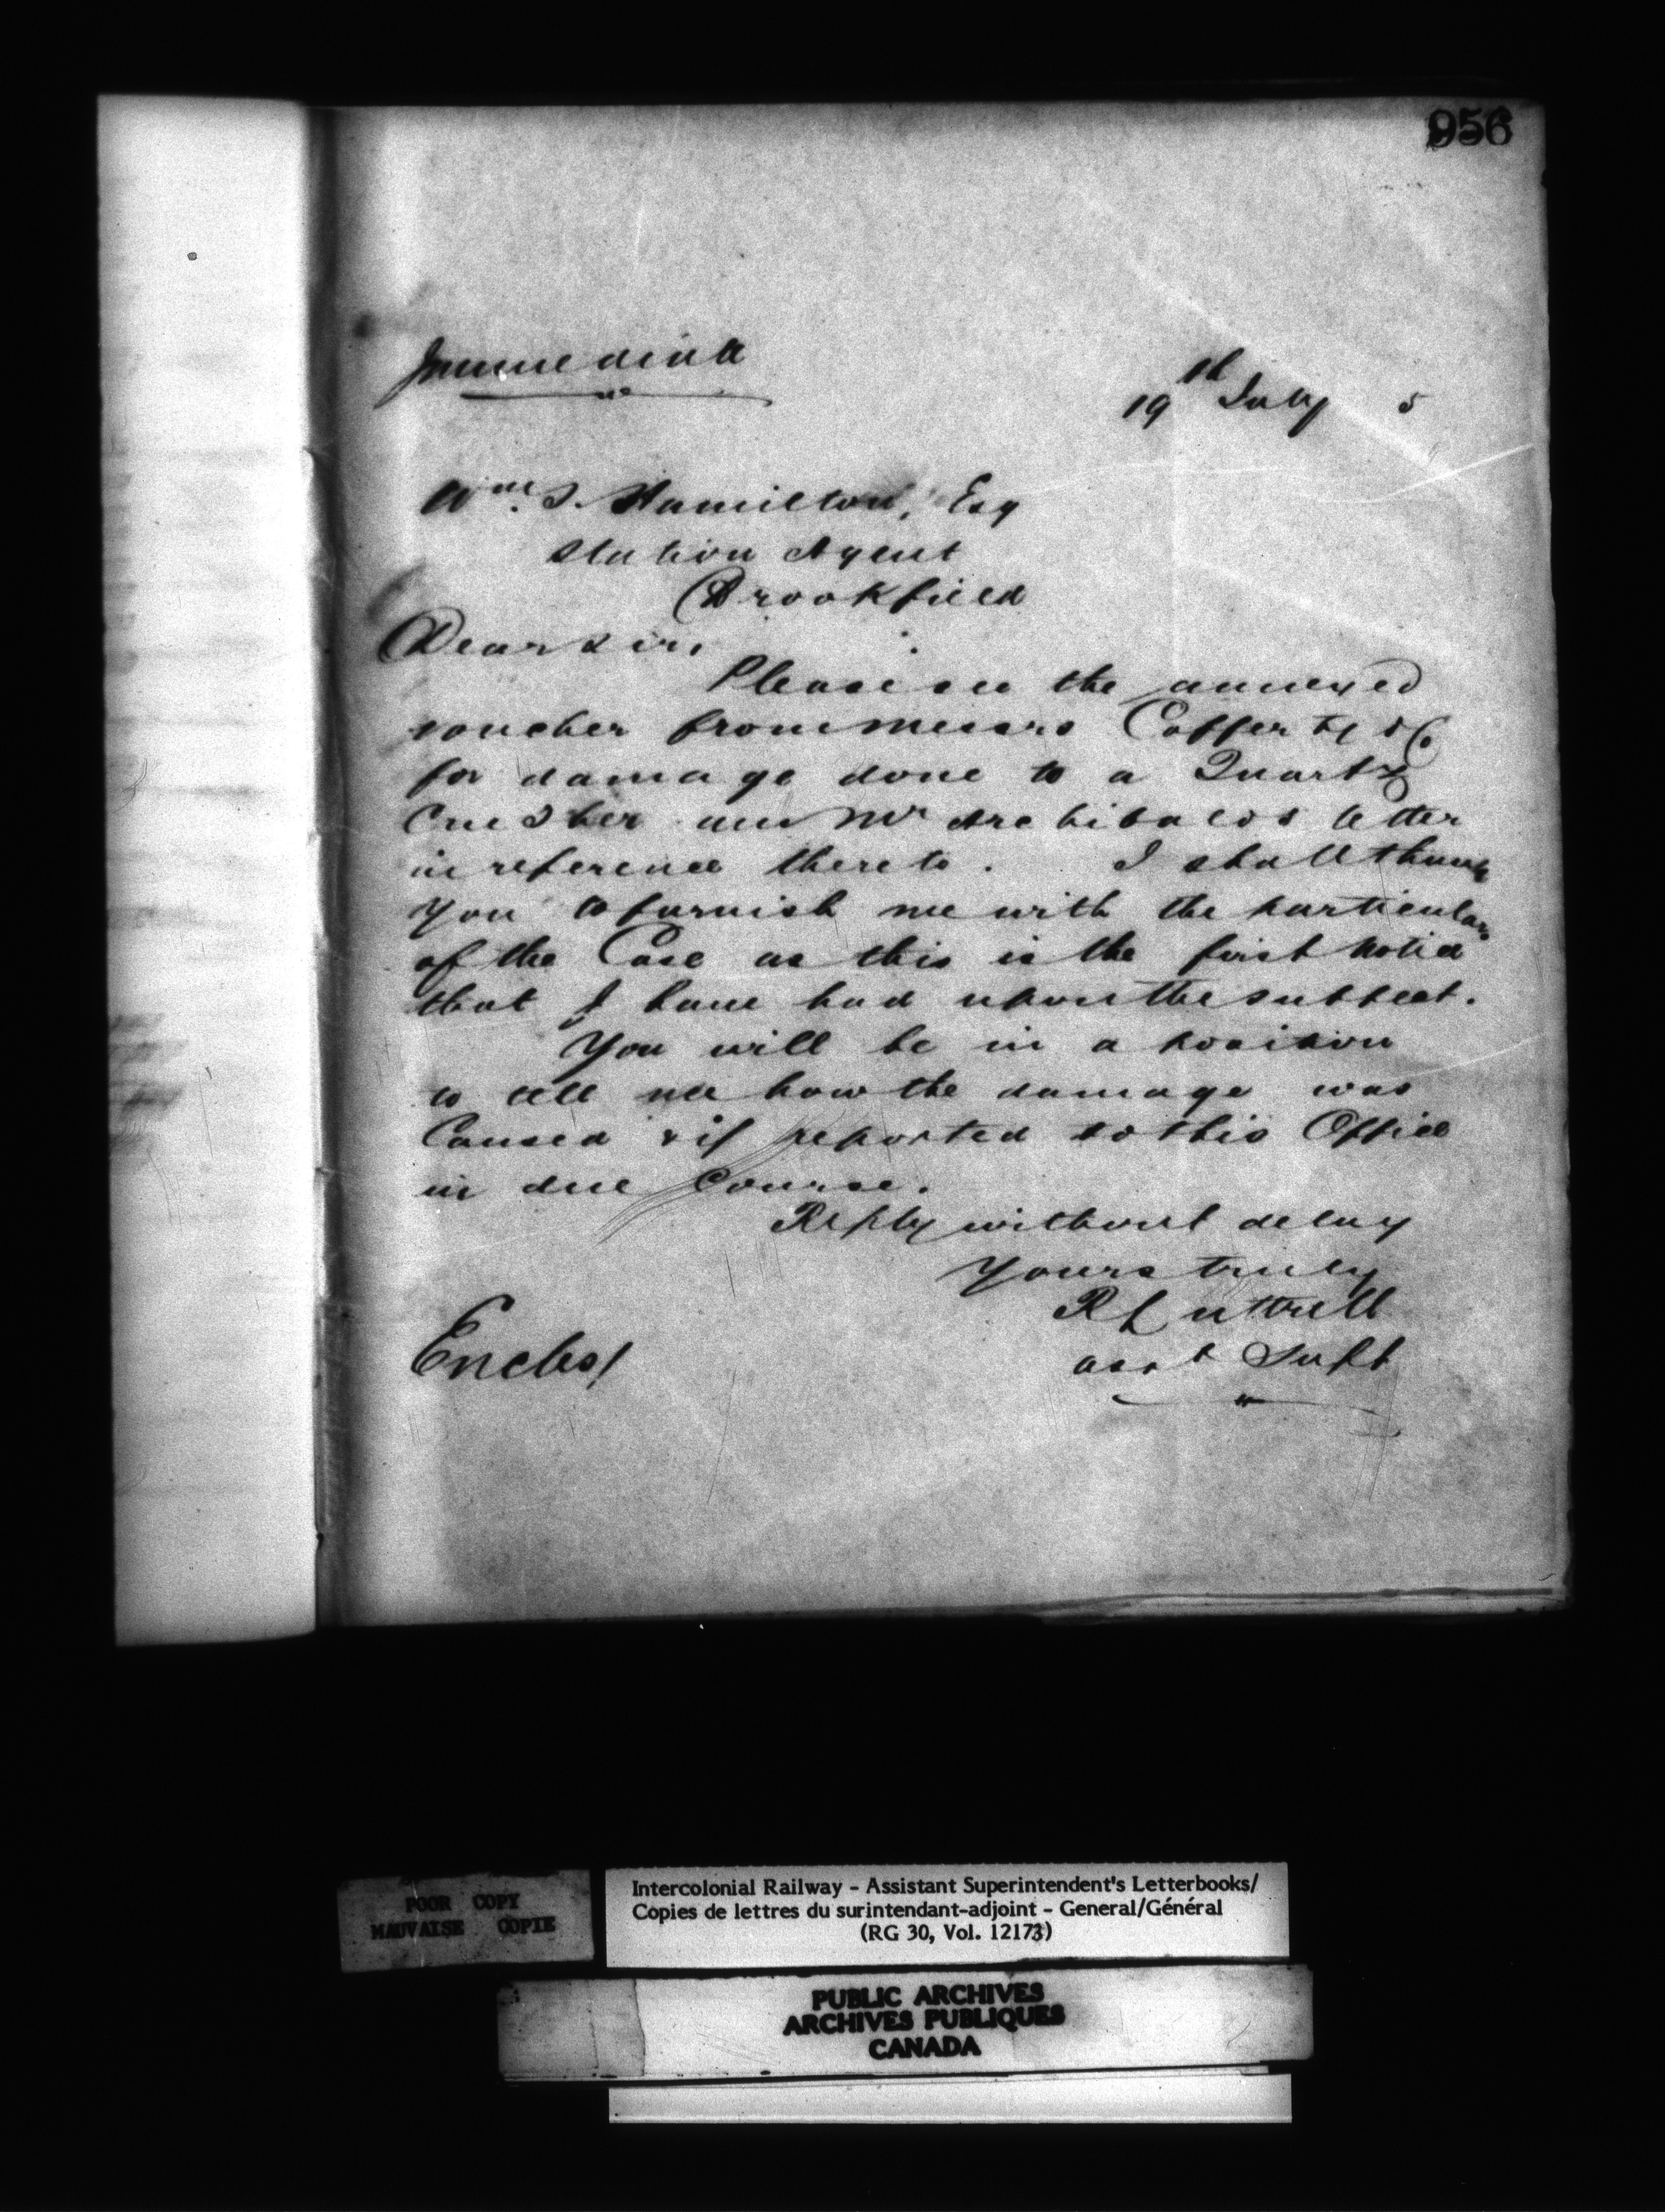 956
Immediate
19th July 5
Wm. S. Hamilton, Esq
Station Agent
Brookfield
Dear Sir,
Please see the annexed
voucher from Messrs Cafferty & Co
for damage done to a Quartz
Crusher and Mr Archibalds letter
in reference thereto. I shall thank
you to furnish me with the particulars
of the Case as this is the first notice
that I have had upon the subject.
You will be in a position
to tell me how the damage was
Caused & if reported to this Office
in due Course.
Reply without delay
Yours truly
R Luttrell
asst Supt
Enclos/
POOR COPY
MAUVAISE COPIE
Intercolonial Railway - Assistant Superintendent's Letterbooks/
Copies de lettres du surintendant-adjoint - General/Général
(RG 30, Vol. 12173)
PUBLIC ARCHIVES
ARCHIVES PUBLIQUES
CANADA